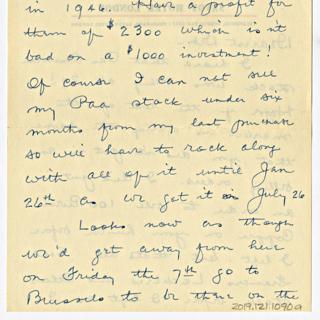 in 1946. Have a profit for
them of $2300 which isn't
bad on a $1000 investment!
Of course I can not sell
my Paa stock under six
months from my last purchase
so we'll have to rock along
with all of it until Jan
26th as we got it on July 26
Looks now as though
we'd get away from here
on Friday the 7th go to
Brussels to be there on the
2019.121.1090a